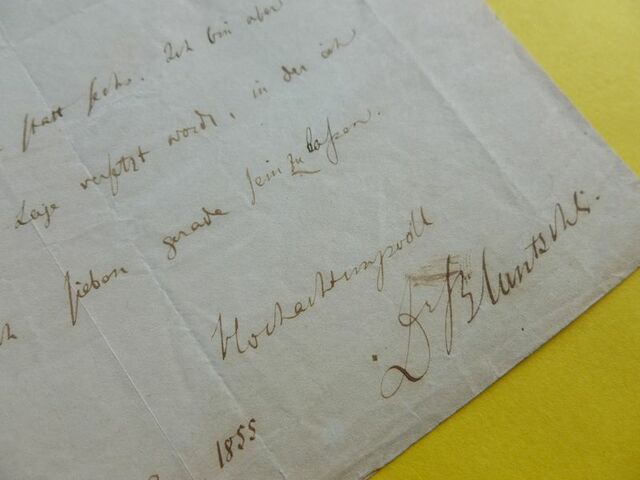 statt sechs. Ich bin aber
Lage versetzt worden, in der ich
sieben gerade sein zu lassen.
Hochachtungsvoll
Dr Bluntschli.
1855